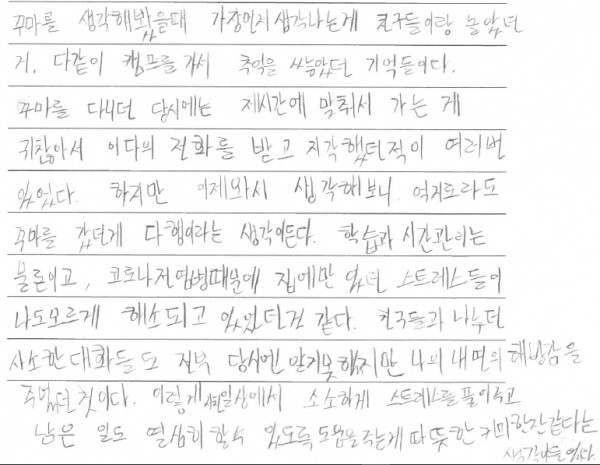 꾸마를 생각해봤을때 가장먼저 생각나는게 친구들이랑 놀았던
거, 다같이 캠프를 가서 추억을 쌓았던 기억들이다.
꾸마를 다니던 당시에는 제시간에 맞춰서 가는 게
귀찮아서 이다의 전화를 받고 지각했던적이 여러번
있었다. 하지만 이제와서 생각해보니 억지로라도
꾸마를 갔던게 다행이라는 생각이든다. 학습과 시간관리는
물론이고, 코로나전염병때문에 집에만 있던 스트레스들이
나도모르게 해소되고 있었던건 같다. 친구들과 나누던
사소한 대화들도 전부 당시엔 알지못했지만 나의 내면의 해방감을
주었던 것이다. 이렇게 일상에서 소소하게 스트레스를 풀어주고
남은 일도 열심히 할수 있도록 도움을 주는게 따뜻한 커피한잔같다는
생각이들었다.